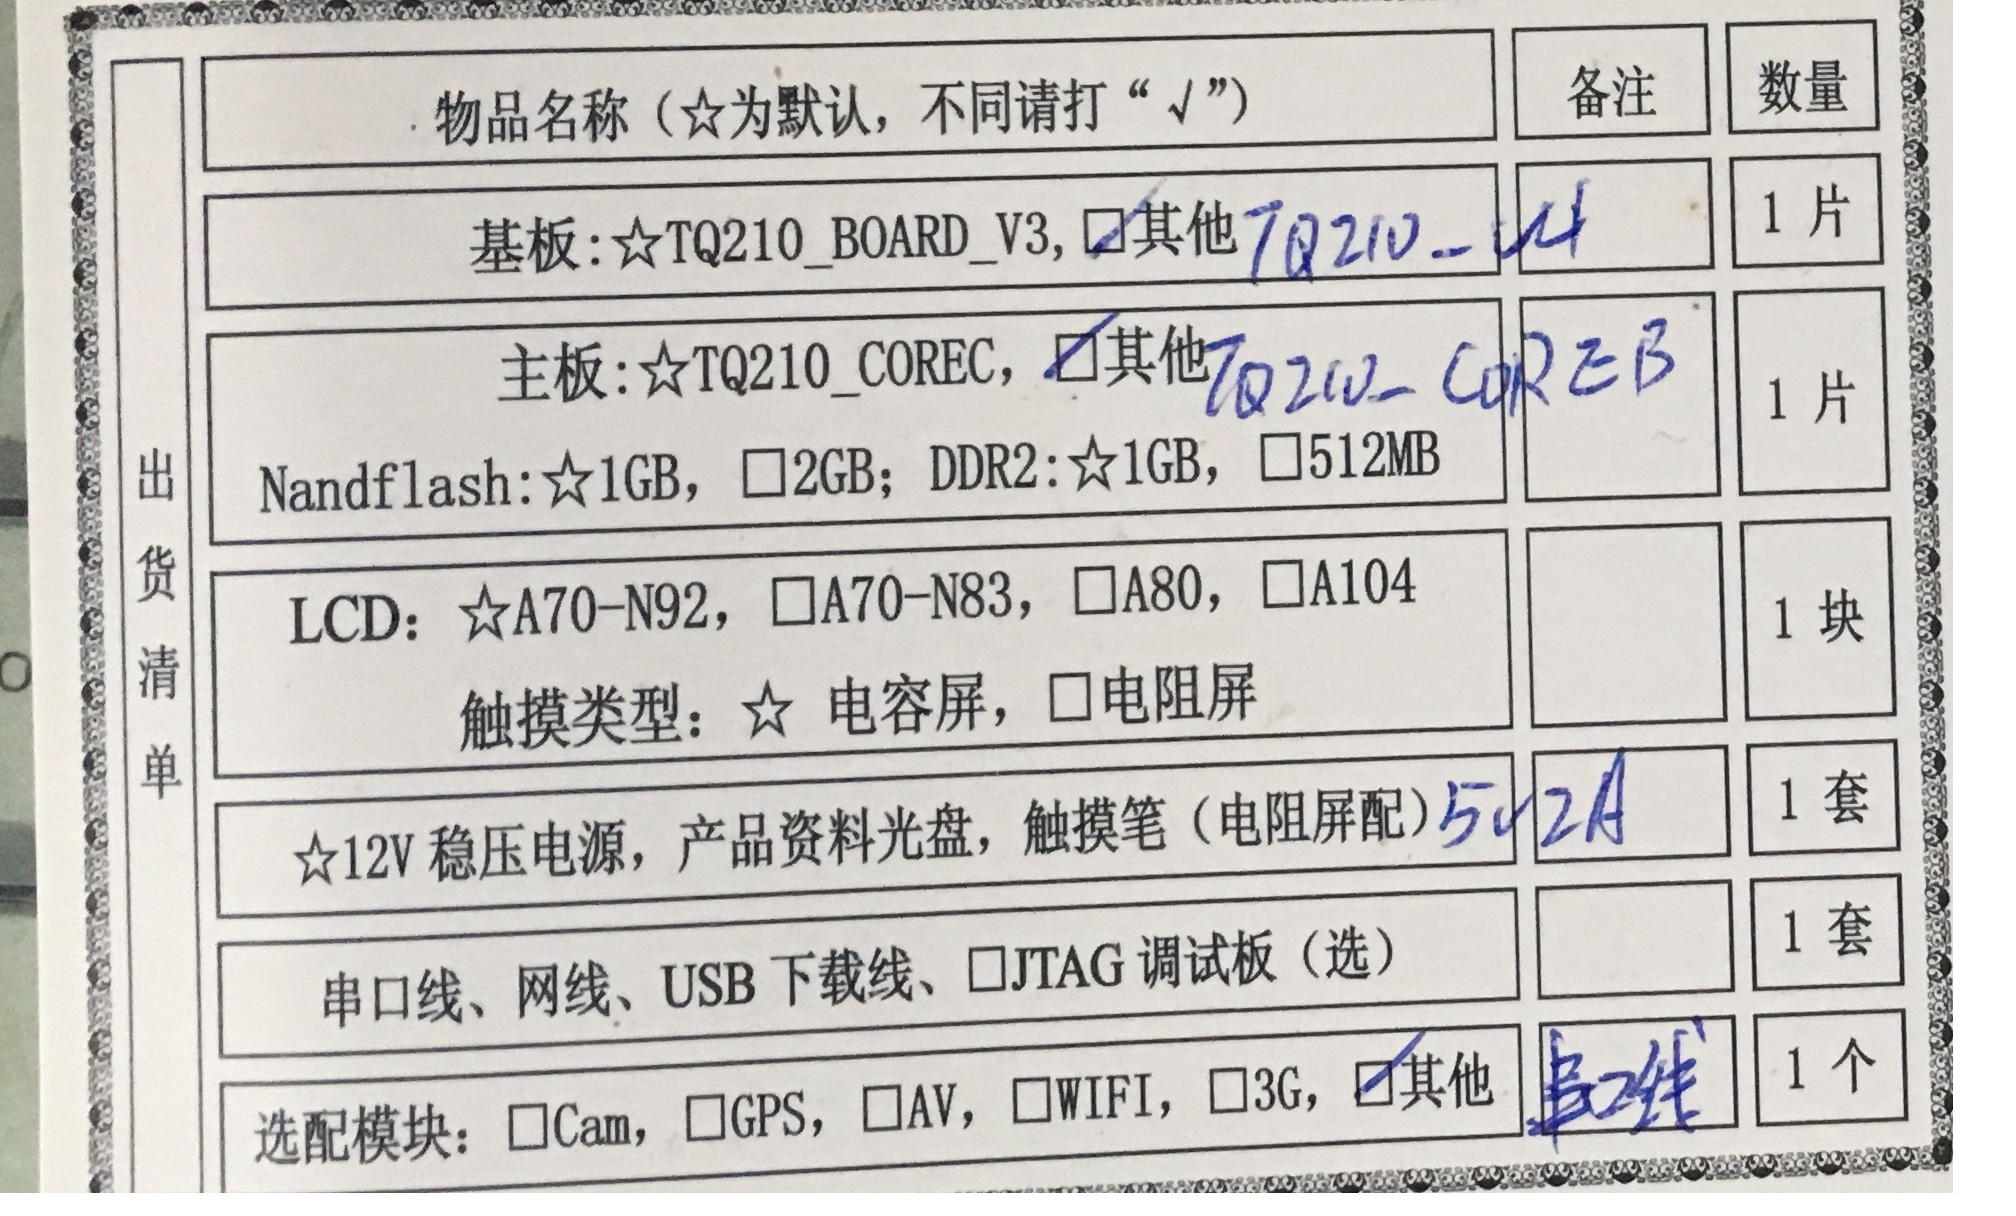 出货清单
物品名称（☆为默认，不同请打“√”） 备注 数量
基板:☆TQ210_BOARD_V3,☑其他 TQ210_V4 1 片
主板:☆TQ210_COREC,☑其他 TQ210_COREB
Nandflash:☆1GB, □2GB; DDR2:☆1GB, □512MB 1 片
LCD: ☆A70-N92, □A70-N83, □A80, □A104
触摸类型: ☆ 电容屏, □电阻屏 1 块
☆12V 稳压电源, 产品资料光盘, 触摸笔（电阻屏配） 5V2A 1 套
串口线、网线、USB 下载线、□JTAG 调试板（选） 1 套
选配模块: □Cam, □GPS, □AV, □WIFI, □3G, ☑其他 1 个